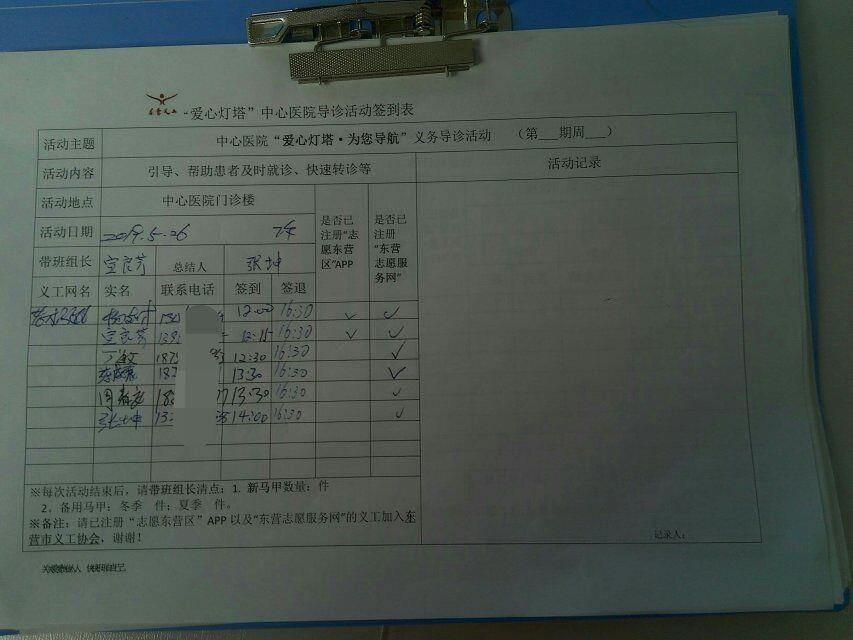 “爱心灯塔”中心医院导诊活动签到表
活动主题 中心医院“爱心灯塔·为您导航”义务导诊活动 （第___期周___）
活动内容 引导、帮助患者及时就诊、快速转诊等 活动记录
活动地点 中心医院门诊楼 是否已注册“志愿东营区”APP 是否已注册“东营志愿服务网”
活动日期 2019.5.26 下午
带班组长 宣良芳 总结人 张坤
义工网名 实名 联系电话 签到 签退
12:00 16:30 ✓ ✓
宣良芳 12:15 16:30 ✓ ✓
丁敏 187 12:30 16:30 ✓
187 13:30 16:30 ✓
13:30 16:30 ✓
张坤 14:00 16:30 ✓
※每次活动结束后，请带班组长清点：1. 新马甲数量： 件
2。备用马甲：冬季 件；夏季 件。
※备注：请已注册“志愿东营区”APP 以及“东营志愿服务网”的义工加入东
营市义工协会，谢谢！
记录人：